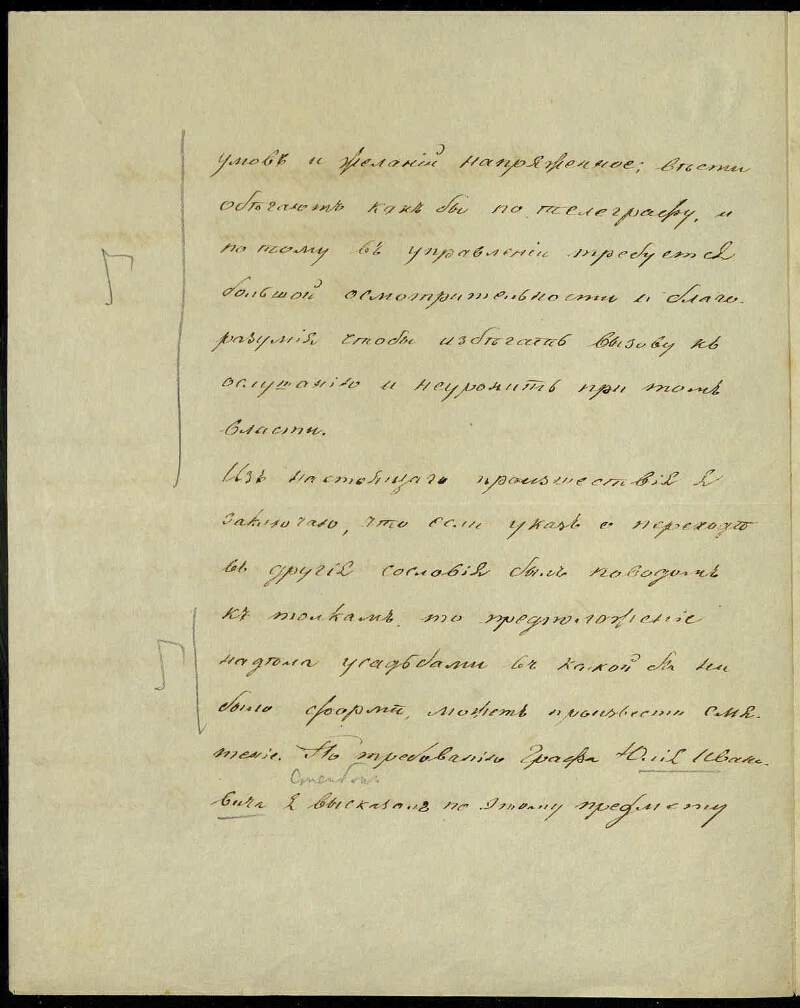 умовъ и желаній напряженное; вѣсти
обѣгаютъ какъ бы по телеграфу, и
по тому въ управленіи требуется
большой осмотрительности и благо-
разумія чтобы избѣгать вызову къ
ослушанію и неуронить при томъ
власти.
Изъ настоящаго произшествія я
заключаю, что если указъ о переходѣ
въ другія сословія былъ поводомъ
къ толкамъ, то предположеніе
надѣла усадьбами въ какой бы ни
было формѣ, можетъ произвести смя-
теніе. По требованію Графа Юлія Ивано-
Стенбокъ
вича я высказалъ по этому предмету